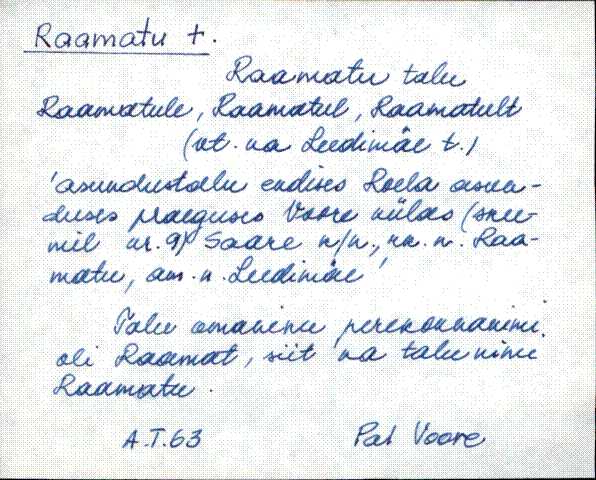 Raamatu t.
Raamatu talu
Raamatule, Raamatul, Raamatult
(vt. ka Leedimäe t.)
'asundustalu endises Roela asun-
duses praeguses Voore külas (skee-
mil nr. 9) Saare k/n., rk. n. Raa-
matu, am. n. Leedimäe'
Talu omaniku perekonnanimi
oli Raamat, siit ka talu nimi
Raamatu.
A.T.63 Pal Voore